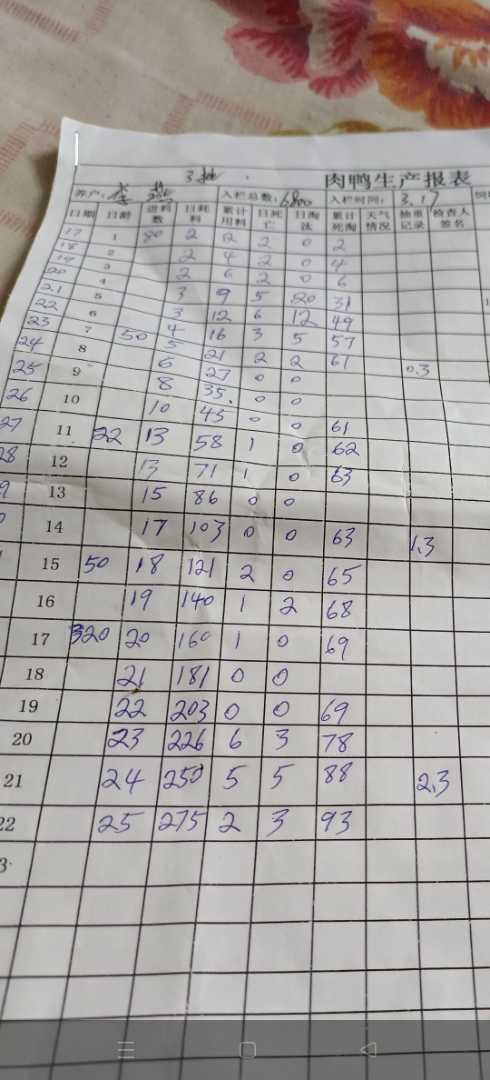 3批
肉鸭生产报表
养户: 李燕 入栏总数: 6800 入栏时间: 3.17
日期 日龄 进料数 日耗料 累计用料 日死亡 日淘汰 累计死淘 天气情况 抽重记录 检查人签名
17 1 80 2 2 2 0 2
18 2 2 4 2 0 4
19 3 2 6 2 0 6
20 4 3 9 5 20 31
21 5 3 12 6 12 49
22 6 4 16 3 5 57
23 7 50 5 21 2 2 61 0.3
24 8 6 27 0 0
25 9 8 35. 0 0
26 10 10 45 0 0 61
27 11 22 13 58 1 0 62
28 12 13 71 1 0 63
9 13 15 86 0 0
14 17 103 0 0 63 1.3
15 50 18 121 2 0 65
16 19 140 1 2 68
17 320 20 160 1 0 69
18 21 181 0 0
19 22 203 0 0 69
20 23 226 6 3 78
21 24 250 5 5 88 2.3
22 25 275 2 3 93
3